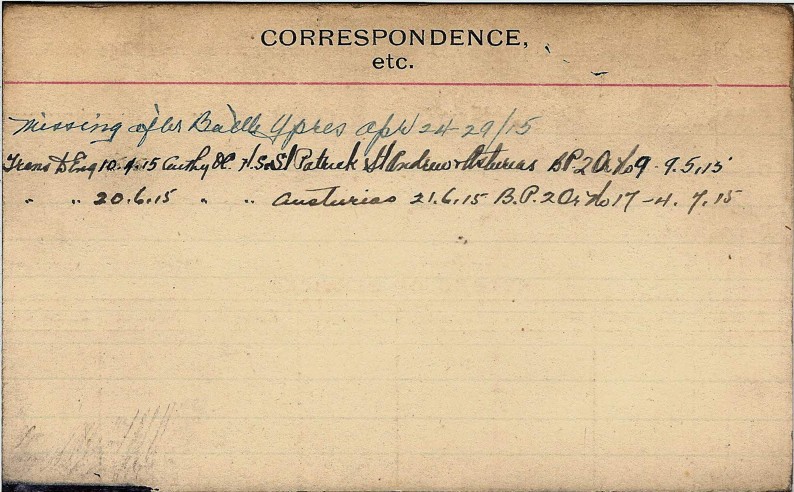 CORRESPONDENCE,
etc.
Missing after Battle Ypres Apr 24-29/15
Trans to Eng 10.4.15 Authy H.S. St Patrick St Andrew & Asturias B.P.2 Or No 9 - 9.5.15
" " 20.6.15 " " Austurias 21.6.15 B.P.2 Or No 17 - 4.7.15